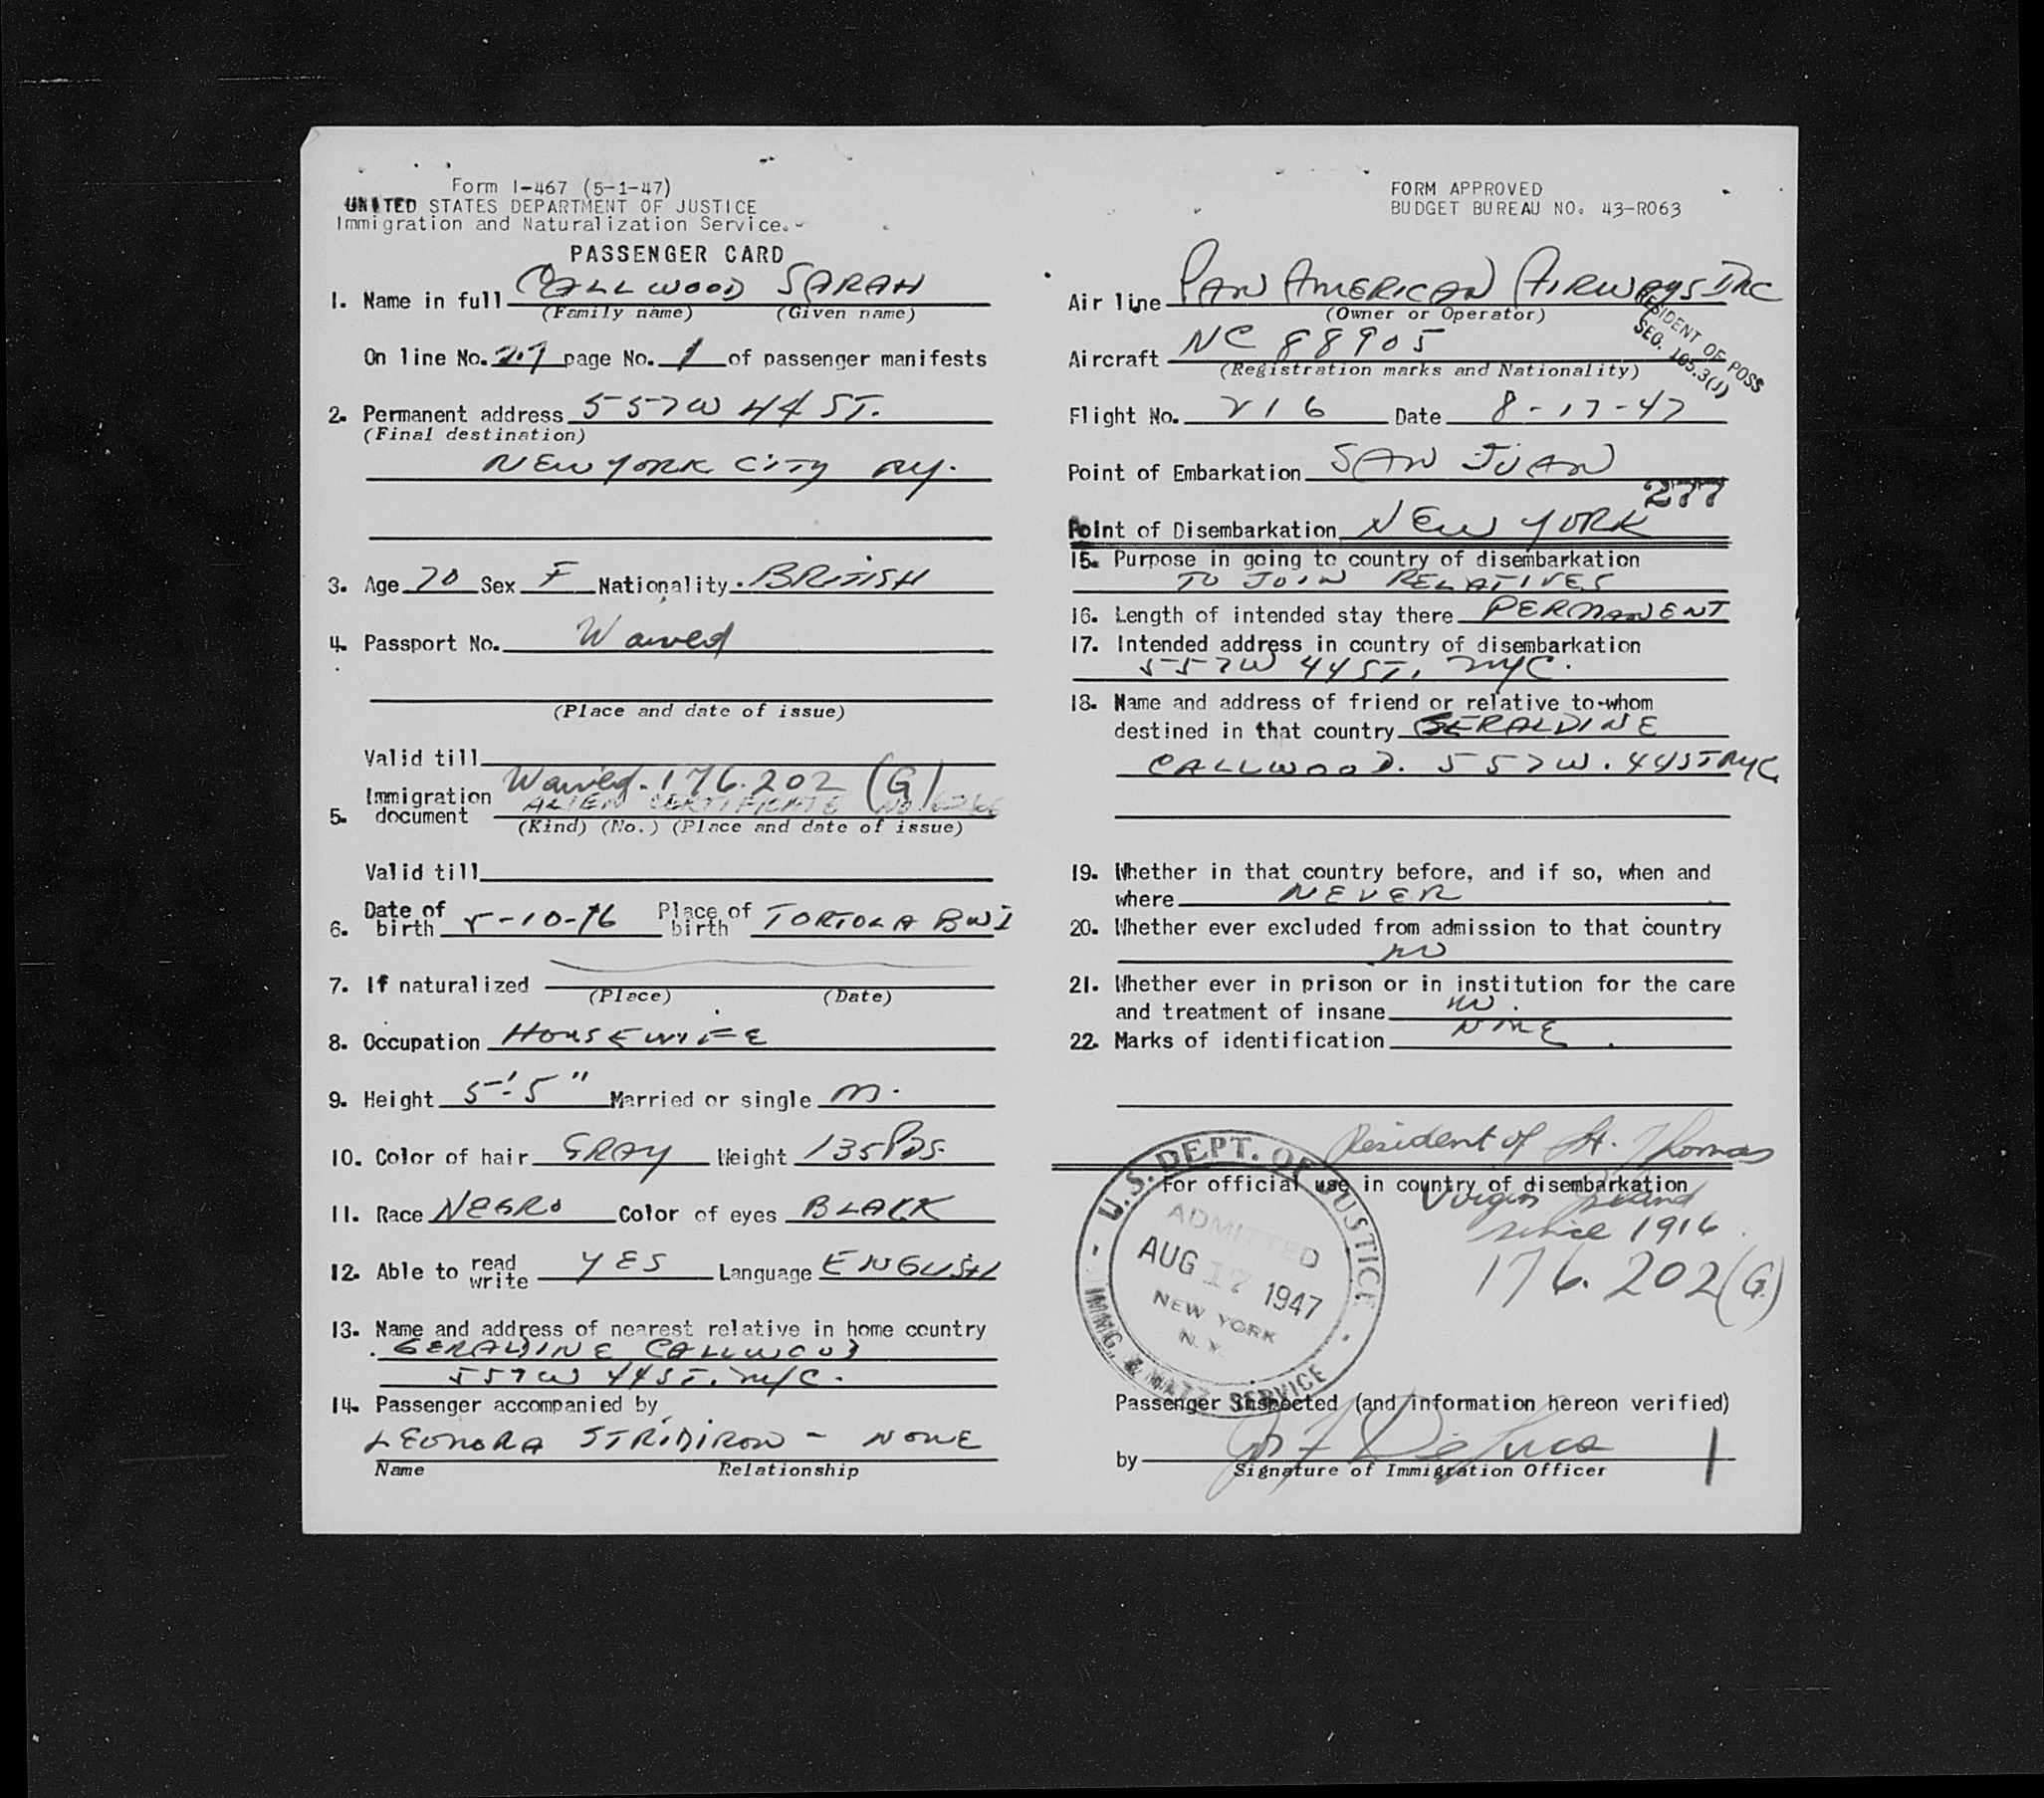 Form I-467 (5-1-47)
UNITED STATES DEPARTMENT OF JUSTICE
Immigration and Naturalization Service.
PASSENGER CARD
1. Name in full CALLWOOD SARAH
(Family name) (Given name)
On line No. 27 page No. 1 of passenger manifests
2. Permanent address 557 W 44 ST.
(Final destination)
NEW YORK CITY NY.
3. Age 70 Sex F Nationality BRITISH
4. Passport No. Waived
(Place and date of issue)
Valid till
Waived. 176.202 (G)
5. Immigration document ALIEN CERTIFICATE NO
(Kind) (No.) (Place and date of issue)
Valid till
6. Date of birth 5-10-76 Place of birth TORTOLA BWI
7. If naturalized
(Place) (Date)
8. Occupation HOUSEWIFE
9. Height 5'-5" Married or single M.
10. Color of hair GRAY Weight 135 PDS.
11. Race NEGRO Color of eyes BLACK
12. Able to read write YES Language ENGLISH
13. Name and address of nearest relative in home country
GERALDINE CALLWOOD
557 W 44 ST. NYC.
14. Passenger accompanied by
LEONORA STRIDIRON - NONE
Name Relationship
FORM APPROVED
BUDGET BUREAU NO. 43-R063
Air line PAN AMERICAN AIRWAYS INC
(Owner or Operator)
RESIDENT OF POSS
SEC. 165.3(J)
Aircraft NC 88905
(Registration marks and Nationality)
Flight No. 216 Date 8-17-47
Point of Embarkation SAN JUAN
277
Point of Disembarkation NEW YORK
15. Purpose in going to country of disembarkation
TO JOIN RELATIVES
16. Length of intended stay there PERMANENT
17. Intended address in country of disembarkation
557 W 44 ST. NYC.
18. Name and address of friend or relative to whom
destined in that country GERALDINE
CALLWOOD. 557 W. 44 ST NYC
19. Whether in that country before, and if so, when and
where NEVER
20. Whether ever excluded from admission to that country
NO
21. Whether ever in prison or in institution for the care
and treatment of insane NO.
22. Marks of identification NONE
Resident of St. Thomas
For official use in country of disembarkation
Virgin Island
since 1916
176.202(G)
U.S. DEPT. OF JUSTICE
ADMITTED
AUG 17 1947
NEW YORK
N.Y.
IMMG. & NATZ. SERVICE
Passenger Inspected (and information hereon verified)
by
Signature of Immigration Officer